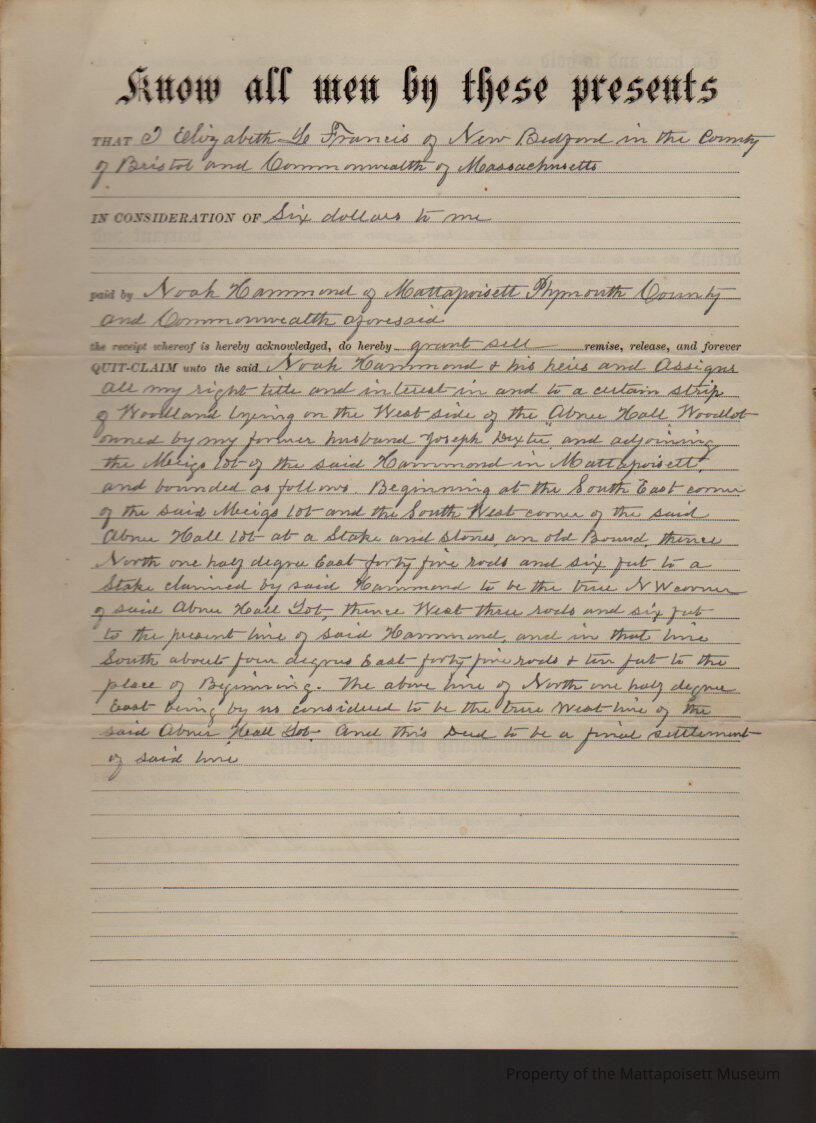 Know all men by these presents
THAT I Elizabeth L Francis of New Bedford in the County
of Bristol and Commonwealth of Massachusetts
IN CONSIDERATION OF Six dollars to me
paid by Noah Hammond of Mattapoisett Plymouth County
and Commonwealth aforesaid
the receipt whereof is hereby acknowledged, do hereby grant sell remise, release, and forever
QUIT-CLAIM unto the said Noah Hammond & his heirs and Assigns
all my right title and interest in and to a certain strip
of Woodland lying on the West side of the Abner Hall Woodlot
owned by my former husband Joseph Dexter and adjoining
the Meigs lot of the said Hammond in Mattapoisett,
and bounded as follows. Beginning at the South East corner
of the said Meigs lot and the South West corner of the said
Abner Hall lot at a Stake and stones, an old Bound, thence
North one half degree East forty five rods and six feet to a
Stake claimed by said Hammond to be the true N W corner
of said Abner Hall Lot, thence West three rods and six feet
to the present line of said Hammond, and in that line
South about four degrees East forty five rods & ten feet to the
place of Beginning. The above line of North one half degree
East being by us considered to be the true West line of the
said Abner Hall Lot. And this Deed to be a final settlement
of said line
Property of the Mattapoisett Museum